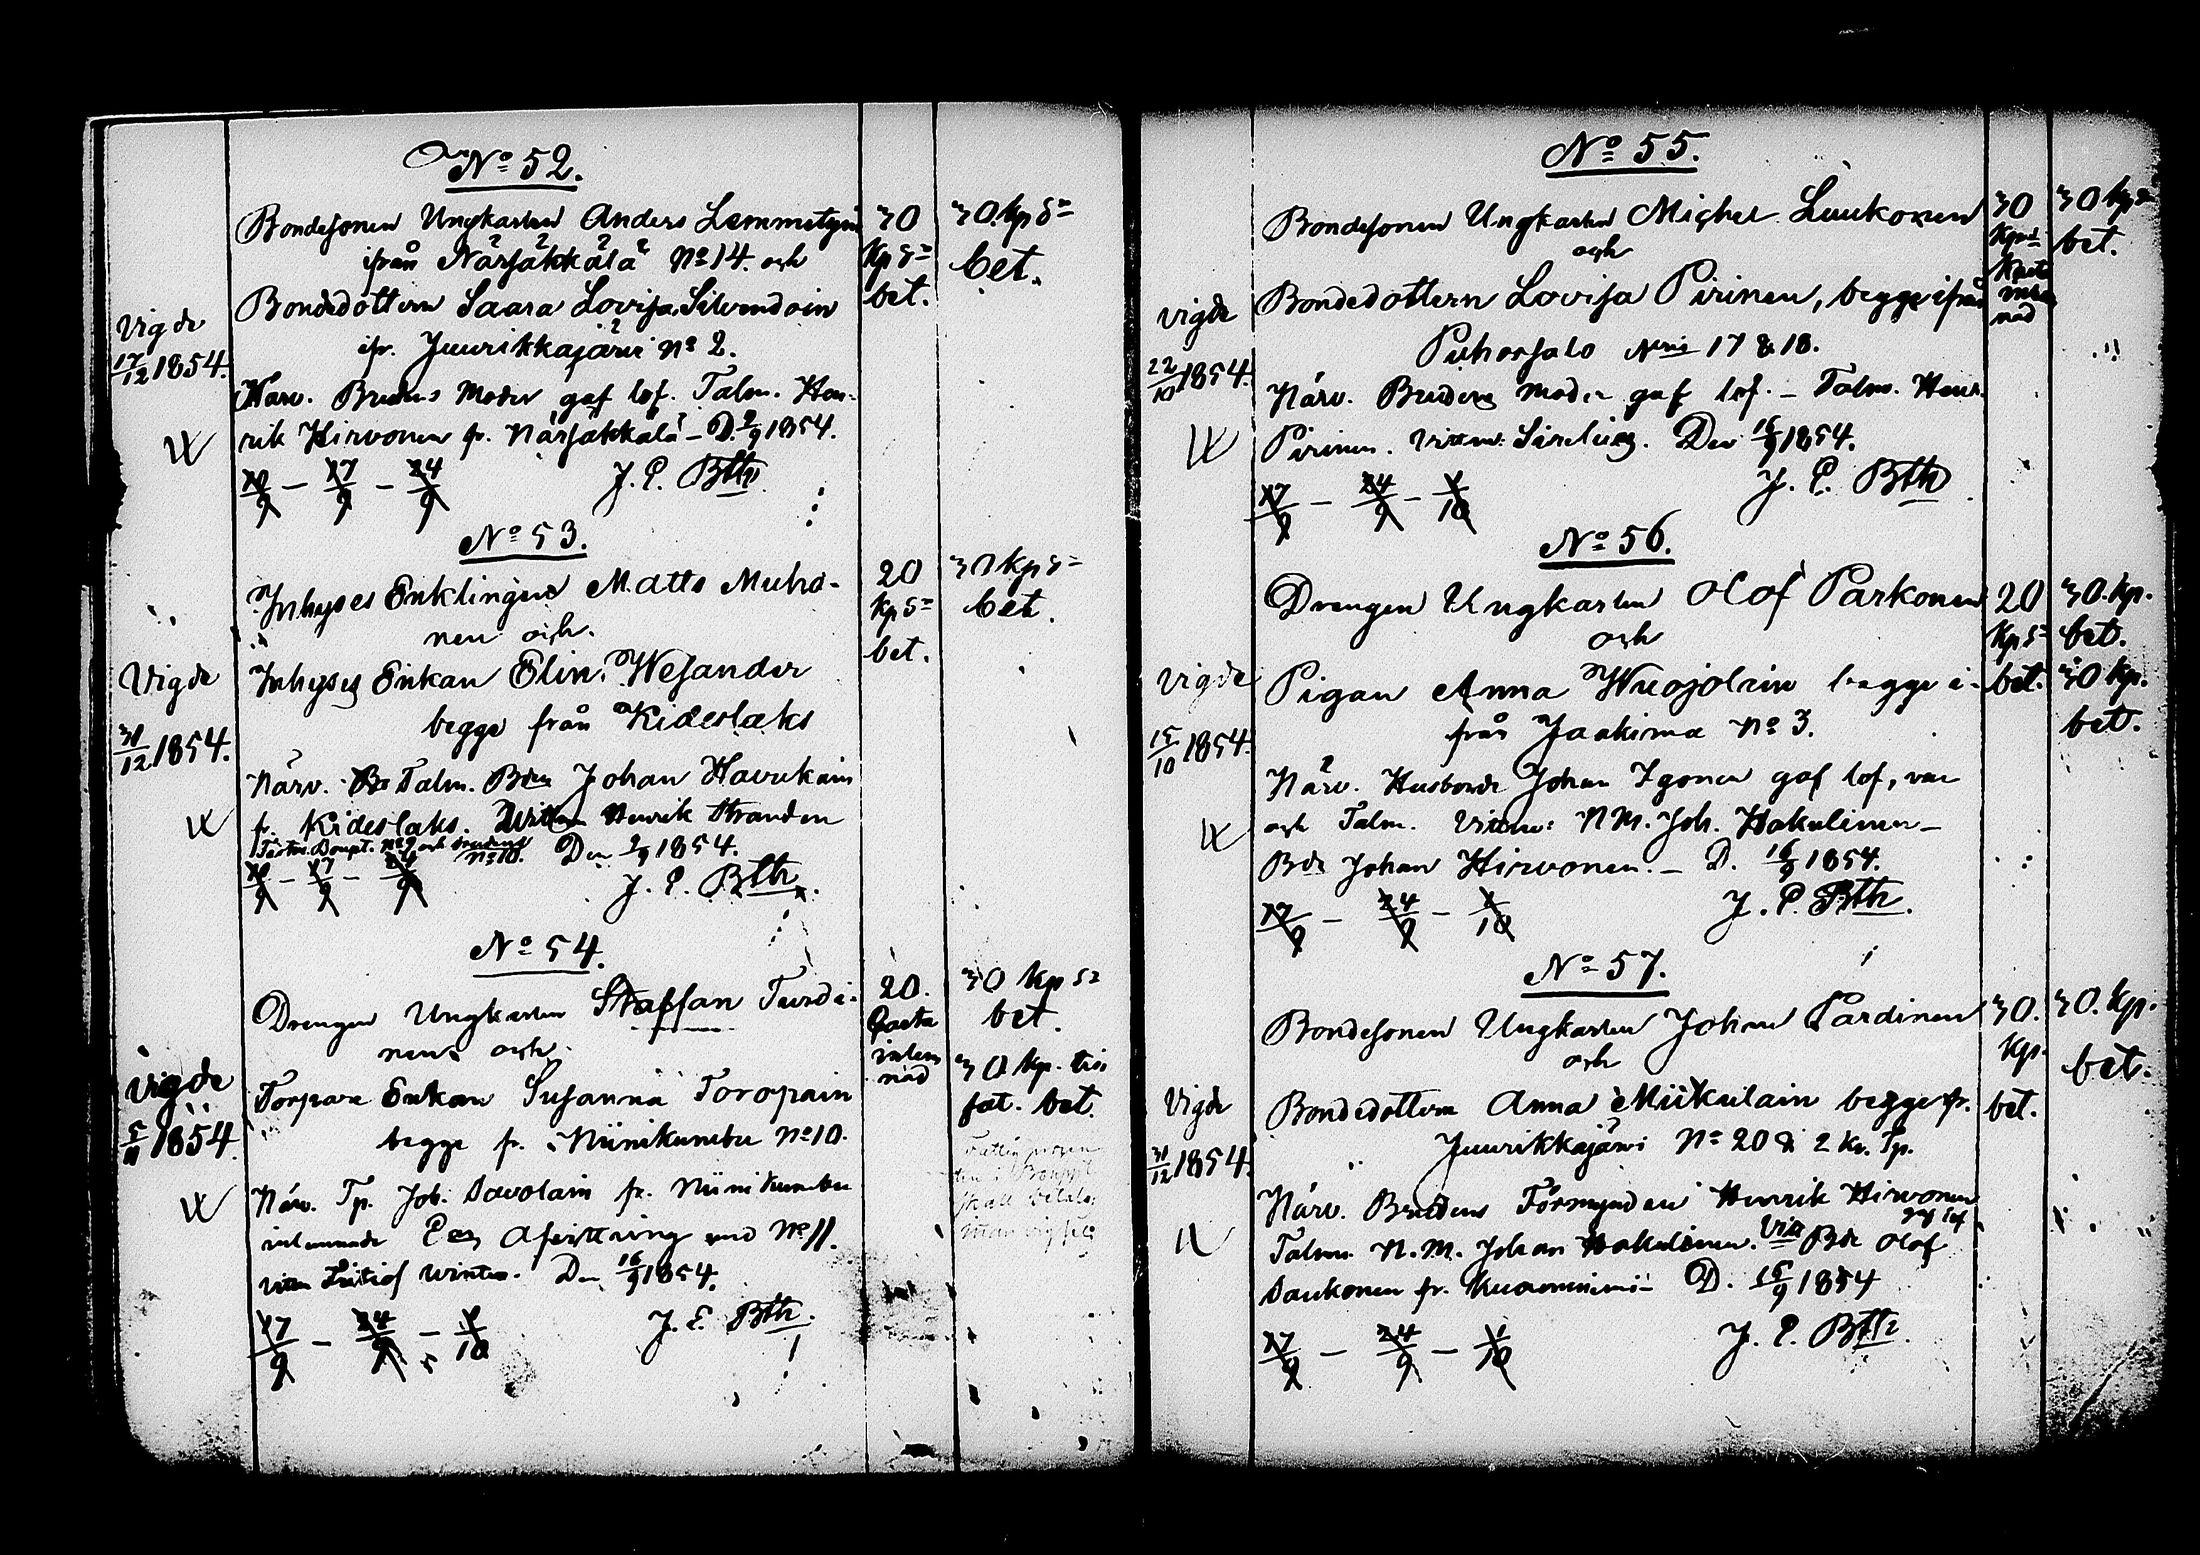 No 52.
Bondesonen Ungkarlen Anders Lemmetyin
ifrån Närsäkkälä No 14. och
Bondedottern Saara Lovisa Silvendoin
ifr. Juurikkajärvi No 2.
Närv. Brudens Moder gaf lof. Talm. Hen-
rik Hirvonen fr. Närsäkkälä - D. 2/9 1854.
10/9 - 17/9 - 24/9 J. E. Bth
Vigde
17/12 1854.
30
Kp S=
bet.
30 Kp S=
bet.
No 53.
Inhyses Enklingen Matts Muho-
nen och
Inhyses Enkan Elin Wesander
begge från Kideslaks
Närv. Talm. Bdn Johan Havukain
fr. Kideslaks. Henrik Stranden
No 9 och
No 10. Den 2/9 1854.
10/9 - 17/9 - 24/9 J. E. Bth
Vigde
31/12 1854.
20
Kp S=
bet.
30 Kp S=
bet.
No 54.
Drengen Ungkarlen Staffan Turdi-
nen och
Torpare Enkan Susanna Toropain
begge fr. Niinikumbu No 10.
Närv. Tp. Joh. Savolain fr. Niinikumbu
inlemnade Afvittring
Winter. Den 16/9 1854.
17/9 - 24/9 - 1/10 J. E. Bth
Vigde
5/11 1854
20.
inlem
nad
30 Kp S=
bet.
30 Kp.
bet.
skall betala
No 55.
Bondesonen Ungkarlen Michel Luukonen
och
Bondedottern Lovisa Pirinen, begge ifrån
Puhossalo Nris 17 & 18.
Närv. Brudens Moder gaf lof. - Talm. Henr.
Pirinen. Vittne: Sirelius. Den 16/9 1854.
17/9 - 24/9 - 1/10 J. E. Bth
Vigde
22/10 1854.
30
nad
30 Kp S=
bet.
No 56.
Drengen Ungkarlen Olof Parkonen
och
Pigan Anna Wuojolain begge i-
från Jaakima No 3.
Närv. Husbonde Johan Igonen gaf lof, var
och Talm. Vittne: N.M. Joh. Hakulinen -
Bde Johan Hirvonen. - D. 16/9 1854.
17/9 - 24/9 - 1/10 J. E. Bth
Vigde
15/10 1854
20
Kp S=
bet.
30. Kp.
bet.
30 Kp.
bet.
No 57.
Bondesonen Ungkarlen Johan Pardinen
och
Bondedottern Anna Miikkulain begge fr.
Juurikkajärvi No 20 & 2 Kr. Tp.
Närv. Brudens Förmyndare Henrik Hirvonen
gaf lof
Talm. N.M. Johan Hakulinen. Vitt. Bde Olof
Saukonen fr. D. 15/9 1854
17/9 - 24/9 - 1/10 J. E. Bth
Vigde
31/12 1854.
30.
Kp.
bet.
30. Kp.
bet.